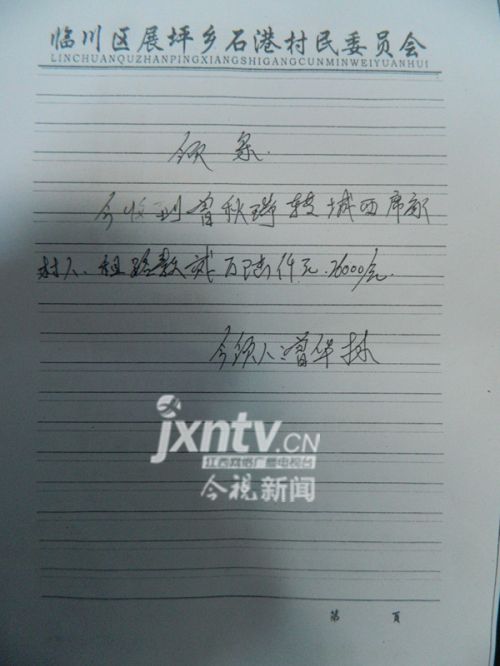 临川区展坪乡石港村民委员会
LINCHUANQUZHANPINGXIANGSHIGANGCUNMINWEIYUANHUI
领条
今收到曾秋瑞转城西席部
村人、组路款贰万陆仟元.26000元.
今领人:曾华林
jxntv.CN
江西网络广播电视台
今视新闻
第 页